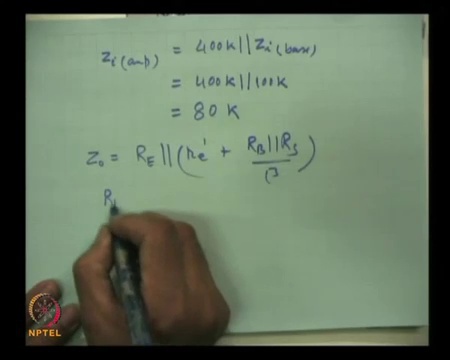 Zi(amp) = 400K||Zi(base)
= 400K||100K
= 80 K
Zo = RE||(re' + RB||RS/β)
R
NPTEL